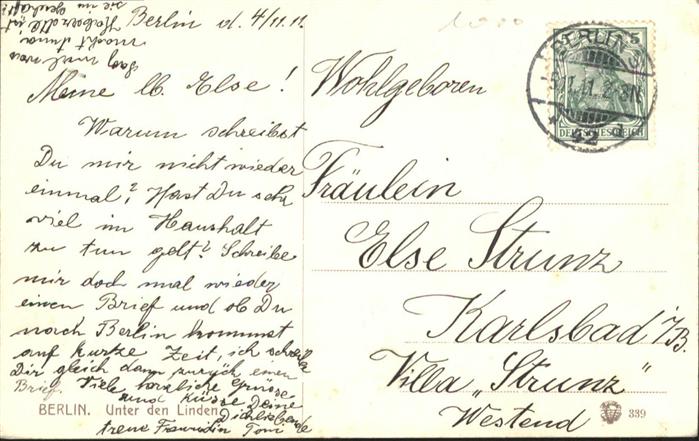 Berlin d. 4/11.11.
Meine lb. Else!
Warum schreibst
Du mir nicht wieder
einmal? Hast Du sehr
viel im Haushalt
zu tun gelt? Schreibe
mir doch mal wieder
einen Brief und ob Du
nach Berlin kommst
auf kurze Zeit, ich schreibe
Dir gleich dann zurück einen
Brief. Viele herzliche Grüsse
und Küsse Deine
Dich liebende
treue Freundin Toni
Sag mal was
macht Anna
sie im
BERLIN. Unter den Linden
Wohlgeboren
Fräulein
Else Strunz
Karlsbad i/B.
Villa „Strunz"
Westend
339
BERLIN
11.11.2-3N
52
5
DEUTSCHES REICH